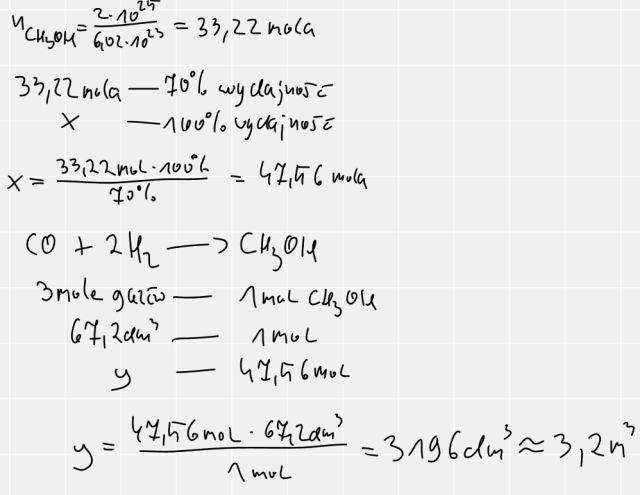 n_CH₃OH = 2·10²⁵ / 6,02·10²³ = 33,22 mola
33,22 mola — 70% wydajność
x — 100% wydajność
x = 33,22 mol · 100% / 70% = 47,56 mola
CO + 2H₂ ⟶ CH₃OH
3 mole gazów — 1 mol CH₃OH
67,2 dm³ — 1 mol
y — 47,56 mol
y = 47,56 mol · 67,2 dm³ / 1 mol = 3196 dm³ ≈ 3,2 m³